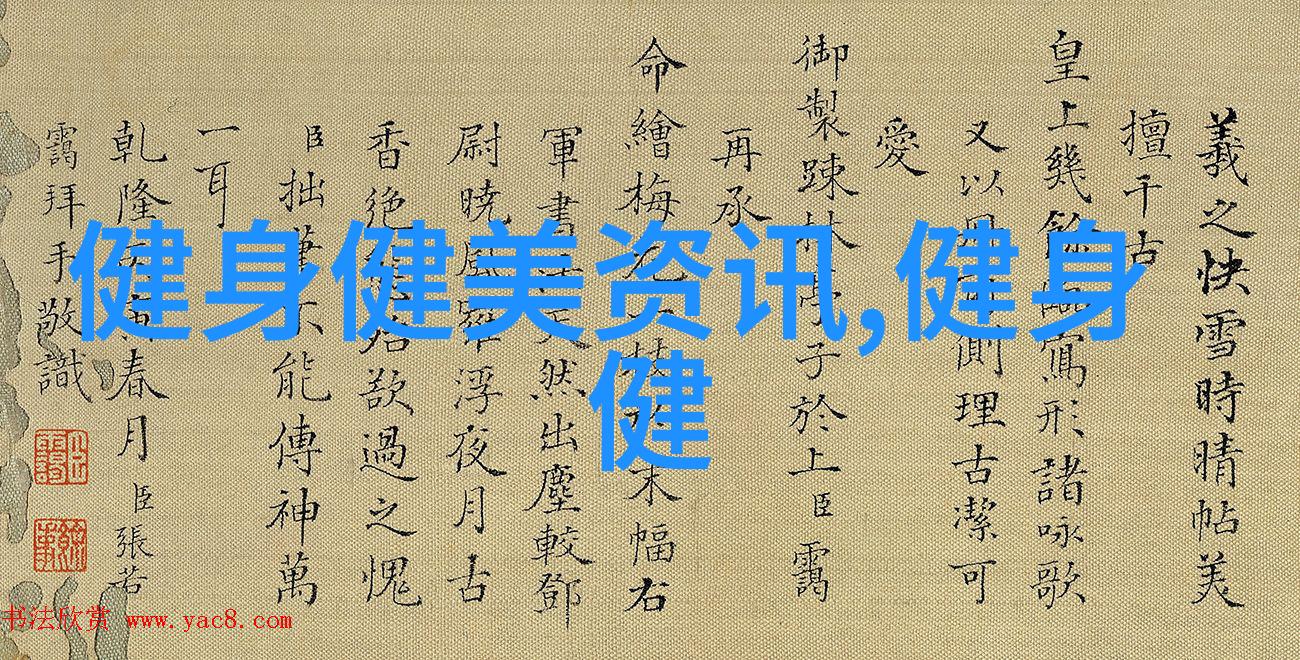 羲之快雪時晴帖美
擅千古
皇上幾餘臨寫形諸咏歌
又以側理古潔可
愛
御製踈林亭子於上臣靄
再承
命繪梅花一枝於末幅右
軍書天然出塵較鄧
尉曉風羅浮夜月古
香絕欲過之愧
臣拙筆不能傳神萬
一耳
乾隆寅春月臣張若
靄拜手敬識
健身健美资讯,健身
健
书法欣赏 www.yac8.com